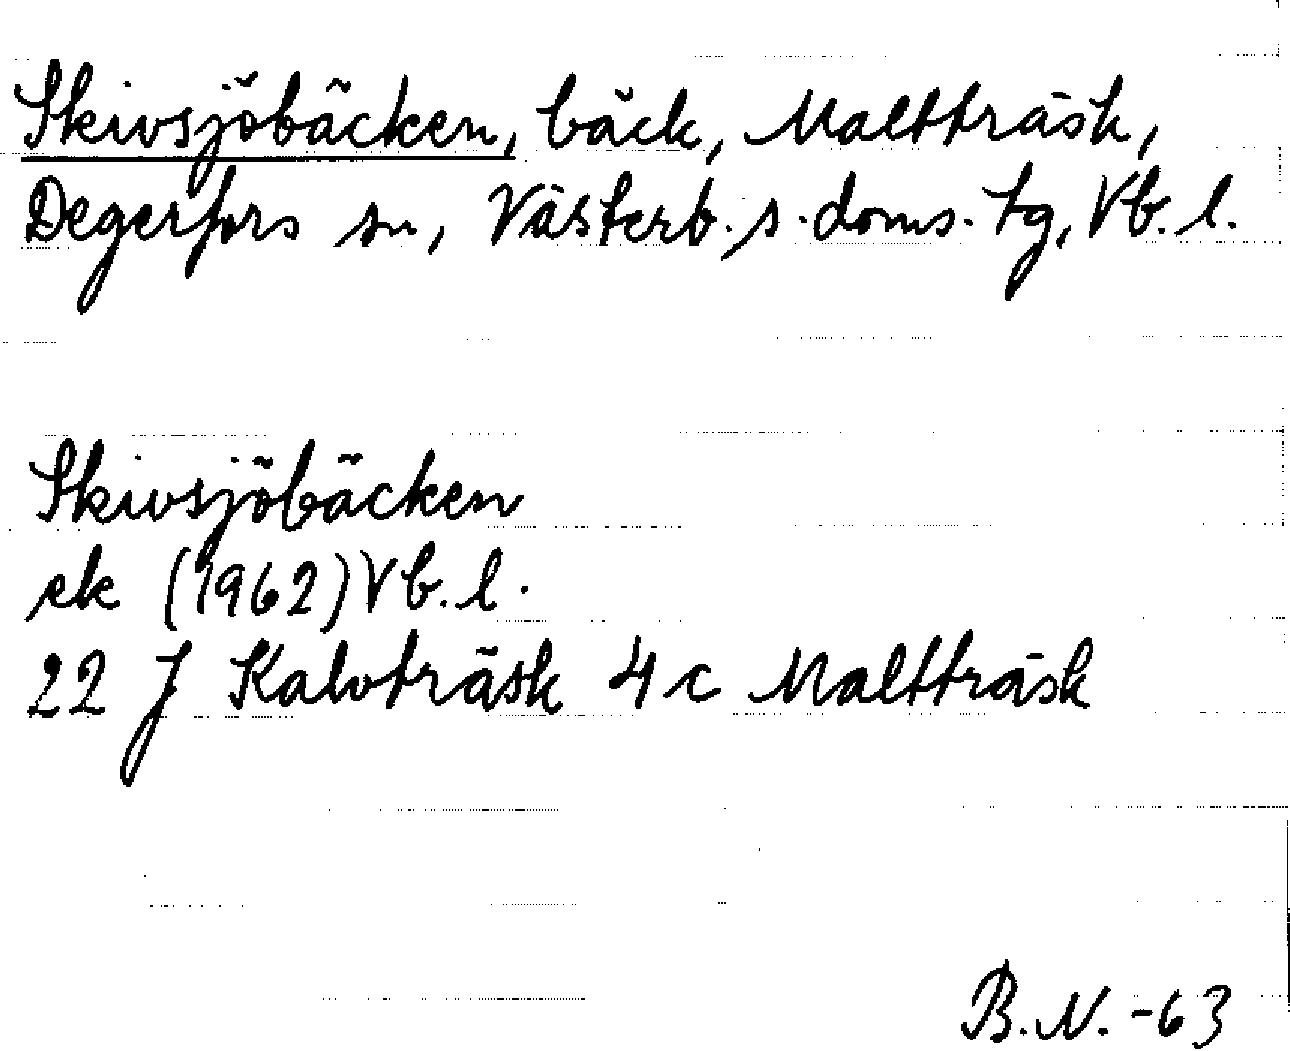 Skivsjöbäcken, bäck, Maltträsk,
Degerfors sn, Västerb. s. doms. tg, Vb. l.
Skivsjöbäcken
ek (1962) Vb. l.
22 J Kalvträsk 4 c Maltträsk
B.N. -63